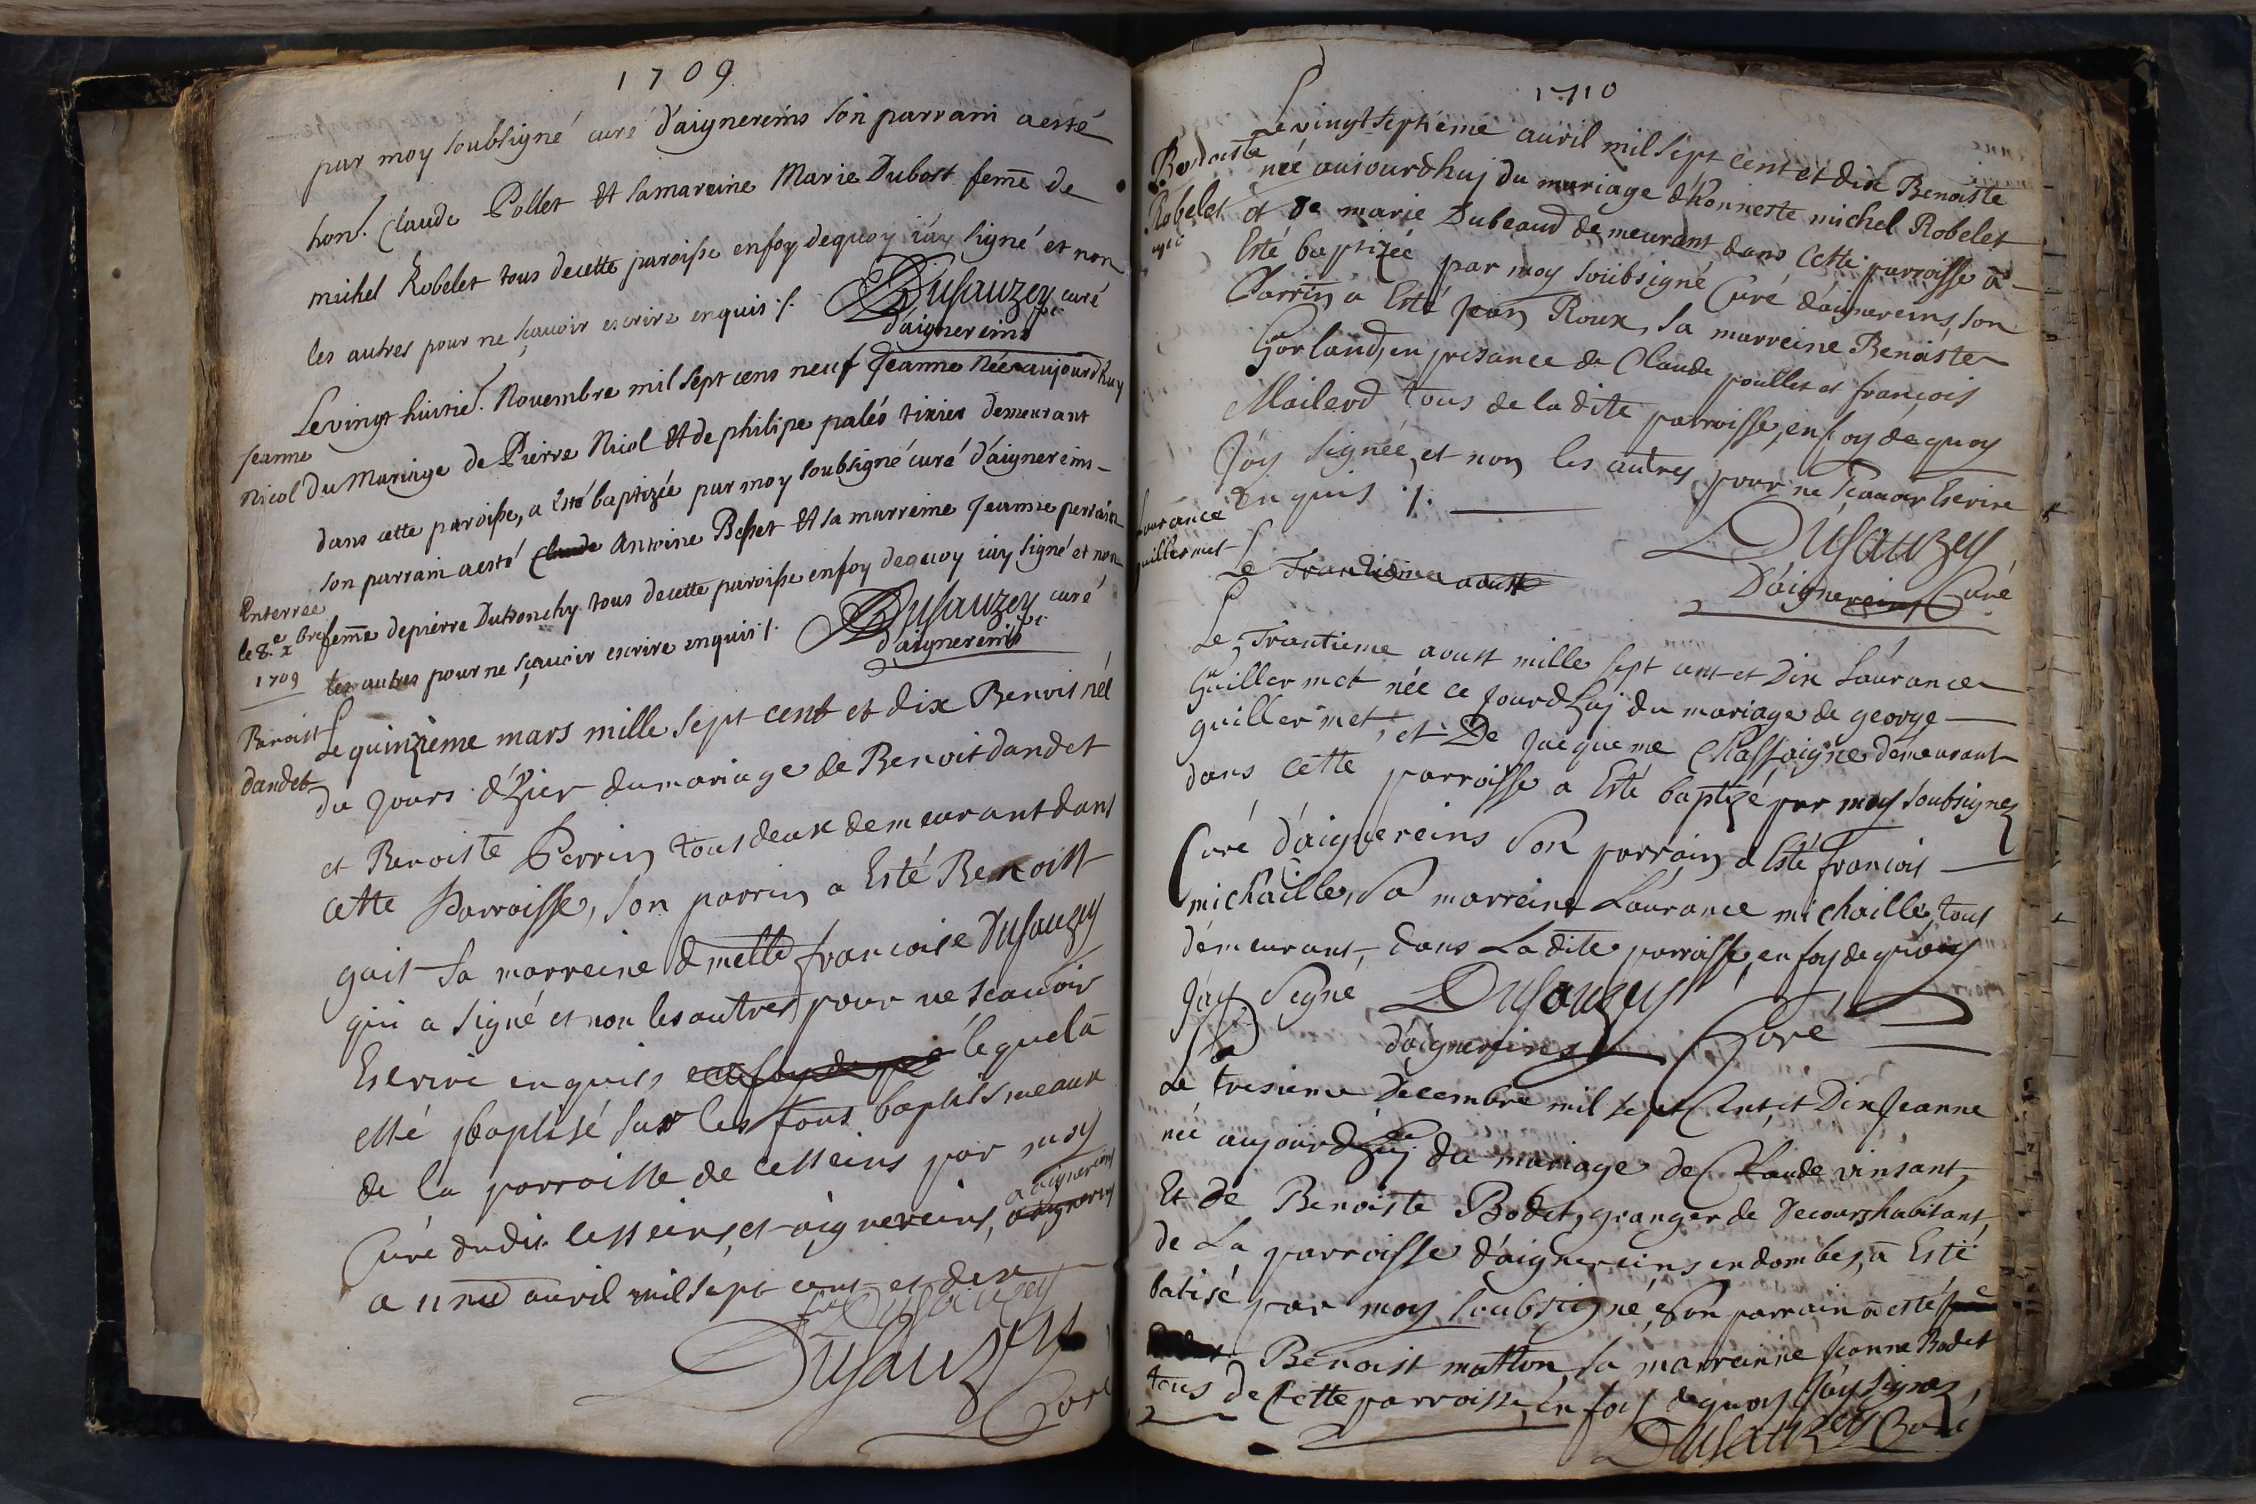 1709
par moy soubsigné curé d'aignereins son parrain a esté
hon. Claude Pollet et sa mareine Marie Dubost feme de
michel Robelet tous de cette paroisse en foy de quoy i'ay signé et non
les autres pour ne sçavoir escrire enquis ./.
Dusauzey curé
d'aignereins
Jeanne
Nicol
Le vingt huitie. Novembre mil sept cens neuf Jeanne Née aujourdhuy
du Mariage de Pierre Nicol et de philipe palés tixier demeurant
dans cette paroisse, a esté baptizée par moy soubsigné curé d'aignereins
son parrain a esté Claude Antoine Besset et sa marreine Jeanne
feme de pierre Dutronchy tous de cette paroisse en foy de quoy i'ay signé et non
les autres pour ne sçavoir escrire enquis ./.
Dusauzey curé
d'aignereins
Enterrée
le 8.e xbre
1709
Benoist
dandet
Le quinzieme mars mille sept cent et dix Benoist né
du jours d'hier du mariage de Benoit dandet
et Benoiste Perrin tous deux demeurant dans
cette Parroisse, son parrin a Esté Benoist
gait sa marreine dmelle francoise Dusauzey
qui a signé et non les autres pour ne scavoir
Escrire enquis en foy de quoi lequel a
esté baptisé sur les fons baptismeaux
de la parroisse de cesseins par moy
Curé dudit cesseins, et aignereins, a aignereins
a unze avril mil sept cent et dix
Dusauzey
Dusauzey
Curé
1710
Benoiste
Robelet
Le vingt septieme auril mil sept cent et dix Benoiste
née aujourdhuj du mariage d'honneste michel Robelet
et de marie Dubeaud demeurant dans cette parroisse a
Esté baptizée par moy soubsigné Curé d'aignereins, son
Parrin a Esté Jean Roux, sa marreine Benoiste
Gorland, en presance de Claude poullet et françois
Mailerd tous de la dite parroisse, en foy de quoy
J'ay signée, et non les autres pour ne scavoir Escrire
enquis ./.
Dusauzey
D'aignereins Curé
Laurance
guillermet
Le Trantieme aoust
Le Trantieme aoust mille sept cent et Dix Laurance
Guillermet née ce jourdhuj du mariage de george
guillermet, et De jacqueme Chassaigne demeurant
dans cette parroisse a Esté baptizé par moy soubsignez
Curé d'aignereins Son parrain a Esté francois
michaille, Sa marreine Laurance michaille, tous
demeurant, dans La dite parroisse, en foy de quoy
J'ay Signé Dusauzey
d'aignereins Curé
Le tresieme Decembre mil sept Cent, et Dix Jeanne
née aujourdhuj du mariage de Claude vinsant,
Et de Benoiste Bodet, granger de habitant
de La parroisse d'aignereins en dombes, a Esté
batisé par moy soubsigné, Son parrain a esté
Benoist matton, sa marreinne Jeanne Bodet
tous de Cette parroisse, en foy de quoy J'ay signez,
Dusauzey Curé